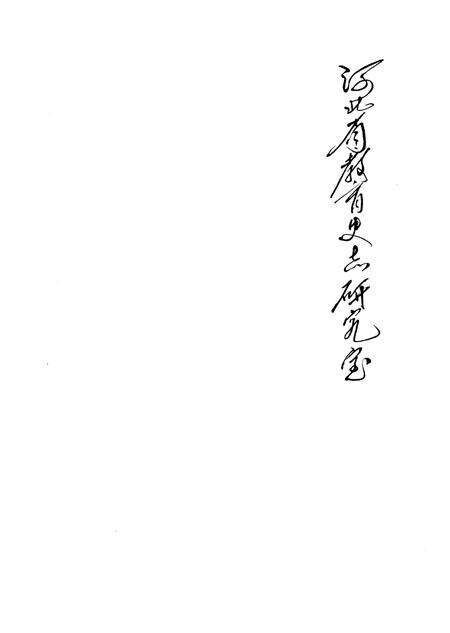 河北省教育史志研究室